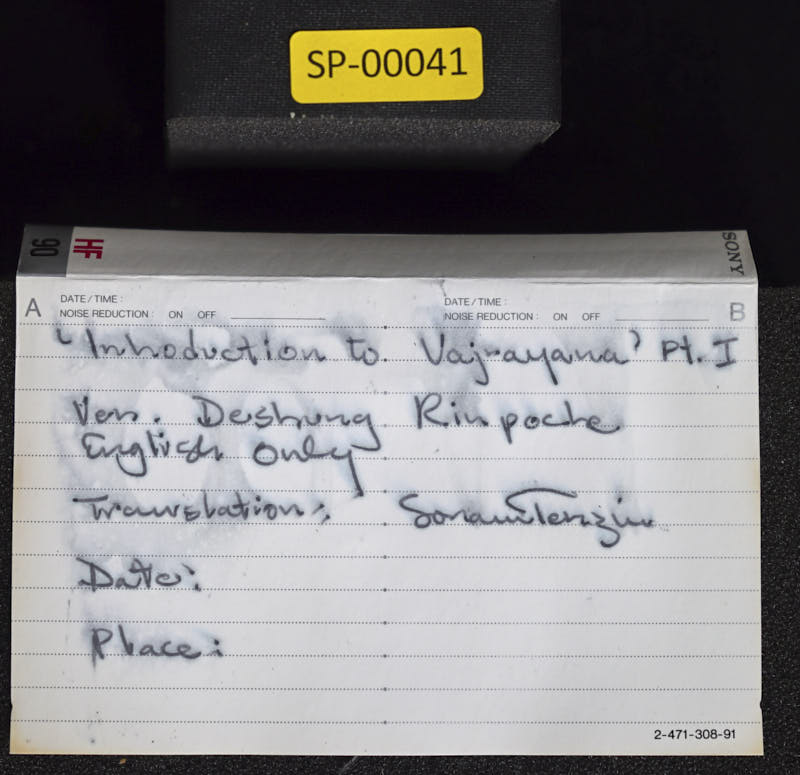 SP-00041
90 HF SONY
A DATE / TIME : DATE / TIME : B
NOISE REDUCTION : ON OFF NOISE REDUCTION : ON OFF
'Introduction to Vajrayana' Pt. I
Ven. Deshung Rinpoche
English Only
Translation: Sonam Tenzin
Date:
Place:
2-471-308-91